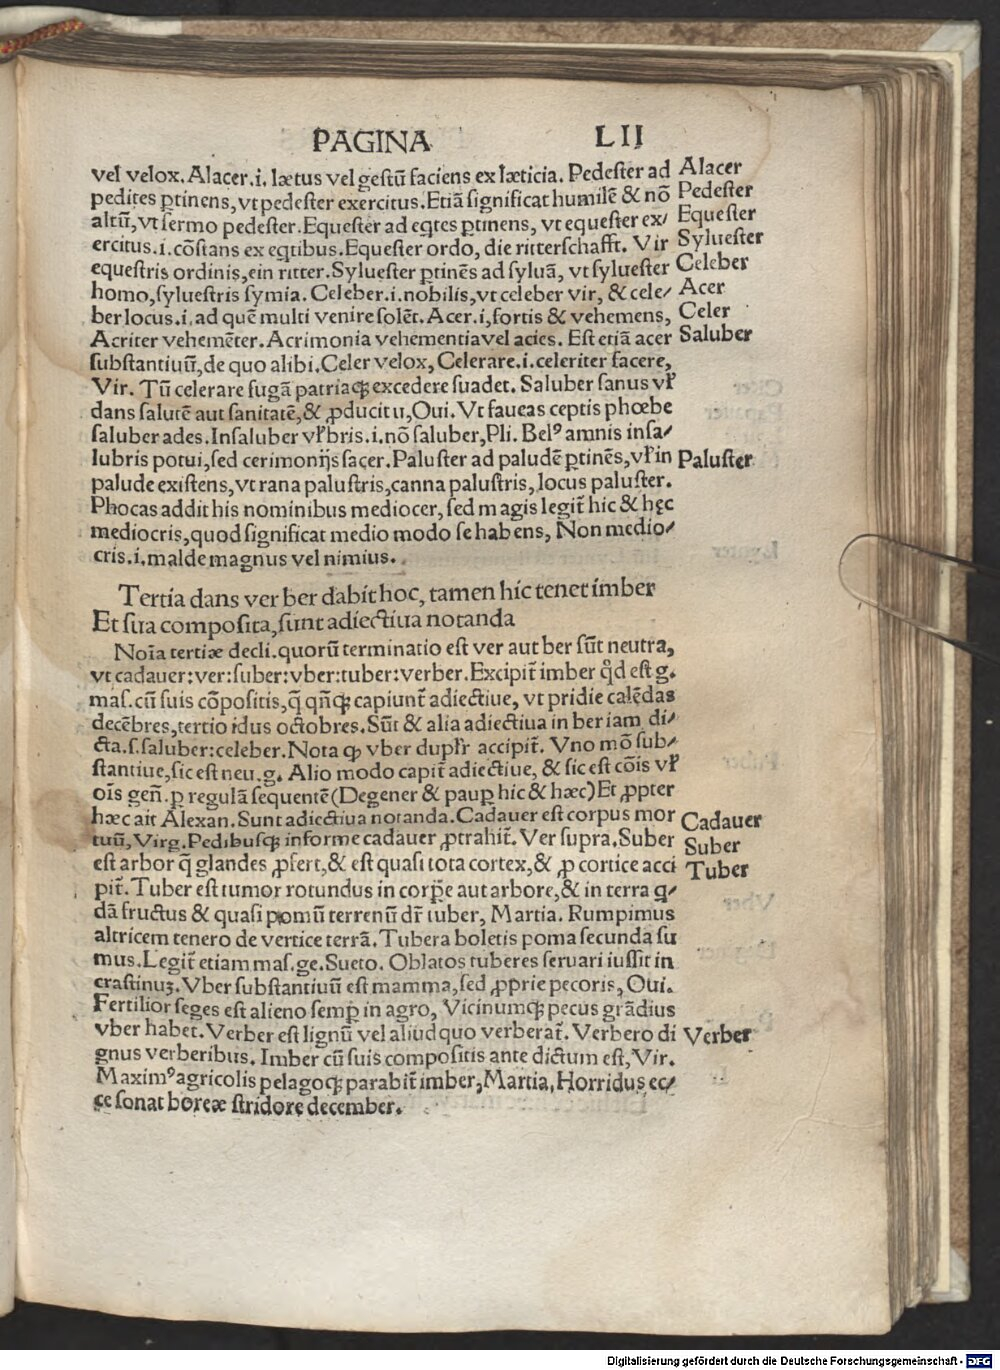 PAGINA LII
vel velox. Alacer.i. lætus vel gestũ faciens ex læticia. Pedester ad Alacer
pedites ꝑtinens, vt pedester exercitus. Etiã significat humilẽ & nõ Pedester
altũ, vt sermo pedester. Equester ad eq̃tes ꝑtinens, vt equester ex/ Equester
ercitus.i. cõstans ex eq̃tibus. Equester ordo, die ritterschafft. Vir Syluester
equestris ordinis, ein ritter. Syluester ꝑtinẽs ad syluã, vt syluester Celeber
homo, syluestris symia. Celeber.i. nobilis, vt celeber vir, & cele/ Acer
ber locus.i. ad quẽ multi venire solẽt. Acer.i, fortis & vehemens, Celer
Acriter vehemẽter. Acrimonia vehementia vel acies. Est etiã acer Saluber
substantiuũ, de quo alibi. Celer velox, Celerare.i. celeriter facere,
Vir. Tũ celerare fugã patriaqꝫ excedere suadet. Saluber sanus vl̃
dans salutẽ aut sanitatẽ, & ꝓducit u, Oui. Vt faueas ceptis phœbe
saluber ades. Insaluber vl̃ bris.i. nõ saluber, Pli. Belꝰ amnis insa/
lubris potui, sed cerimonijs sacer. Paluster ad paludẽ ꝑtinẽs, vl̃ in Paluster
palude existens, vt rana palustris, canna palustris, locus paluster.
Phocas addit his nominibus mediocer, sed magis legit̃ hic & hęc
mediocris, quod significat medio modo se habens, Non medio/
cris.i. malde magnus vel nimius.
Tertia dans ver ber dabit hoc, tamen hic tenet imber
Et sua composita, sunt adiectiua notanda
Noĩa tertiæ decli. quorũ terminatio est ver aut ber sũt neutra,
vt cadauer: ver: suber: vber: tuber: verber. Excipit̃ imber qd̃ est g.
mas. cũ suis cõpositis, q̃ qñqꝫ capiunt̃ adiectiue, vt pridie calẽdas
decẽbres, tertio idus octobres. Sũt & alia adiectiua in ber iam di/
cta.s. saluber: celeber. Nota ꝙ vber duplr̃ accipit̃. Vno mõ sub/
stantiue, sic est neu. g. Alio modo capit̃ adiectiue, & sic est cõis vl̃
oĩs geñ. ꝑ regulã sequentẽ (Degener & pauꝑ hic & hæc) Et ꝓpter
hæc ait Alexan. Sunt adiectiua notanda. Cadauer est corpus mor Cadauer
tuũ, Virg. Pedibusqꝫ informe cadauer ꝓtrahit̃. Ver supra. Suber Suber
est arbor q̃ glandes ꝓfert, & est quasi tota cortex, & ꝓ cortice acci Tuber
pit̃. Tuber est tumor rotundus in corpe aut arbore, & in terra q̃/
dã fructus & quasi pomũ terrenũ dr̃ tuber, Martia. Rumpimus
altricem tenero de vertice terrã. Tubera boletis poma secunda su
mus. Legit̃ etiam mas. ge. Sueto. Oblatos tuberes seruari iussit in
crastinuꝫ. Vber substantiuũ est mamma, sed ꝓprie pecoris, Oui.
Fertilior seges est alieno semꝑ in agro, Vicinumqꝫ pecus grãdius
vber habet. Verber est lignũ vel aliud quo verberat̃. Verbero di Verber
gnus verberibus. Imber cũ suis compositis ante dictum est, Vir.
Maximꝰ agricolis pelagoqꝫ parabit̃ imber, Martia, Horridus ec/
ce sonat boreæ stridore december.
Digitalisierung gefördert durch die Deutsche Forschungsgemeinschaft - DFG